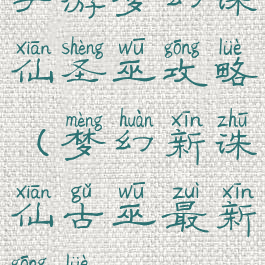 手游梦幻诛
xiān shèng wū gōng lüè
仙圣巫攻略
mèng huàn xīn zhū
（梦幻新诛
xiān gǔ wū zuì xīn
仙古巫最新
gōng lüè